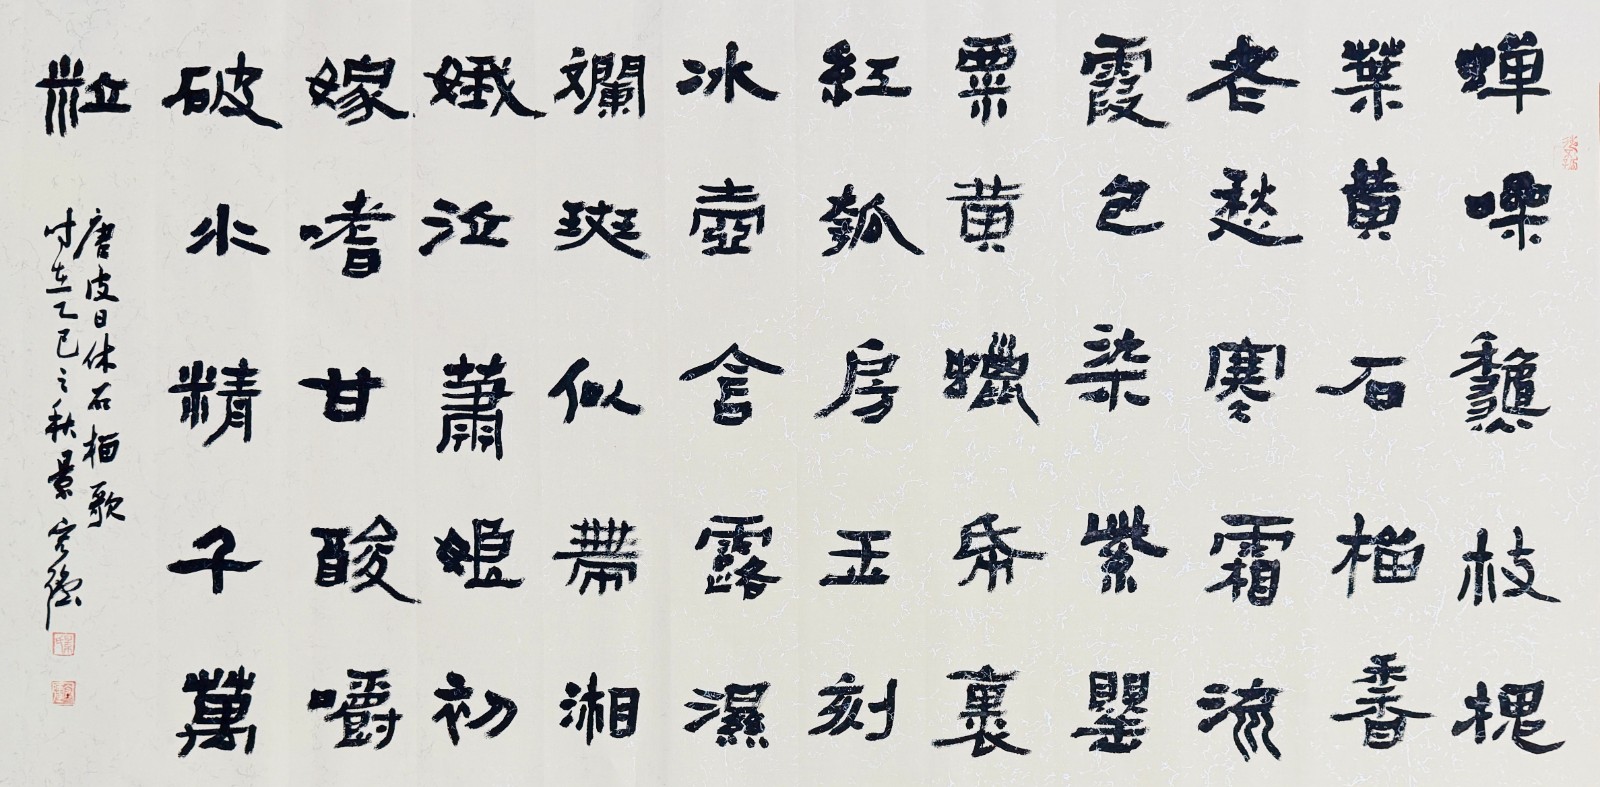 蟬噪鸒枝槐
葉黃石榴香
老愁寒霜流
霞包染紫罌
粟黃蠟帋裹
紅瓠房玉刻
冰壺含露濕
斕斑似帶湘
娥泣蕭娘初
嫁嗜甘酸嚼
破水精千萬
粒
唐皮日休石榴歌
时在乙巳之秋景